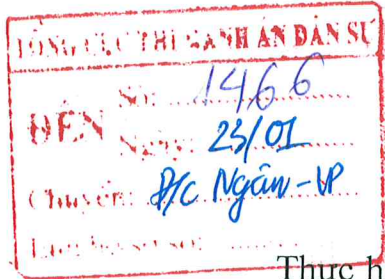 TỔNG CỤC THI HÀNH ÁN DÂN SỰ
ĐẾN
Số: 1466
Ngày: 23/01
Chuyển: Đ/c Ngân - VP
Lưu hồ sơ số:
Thực h